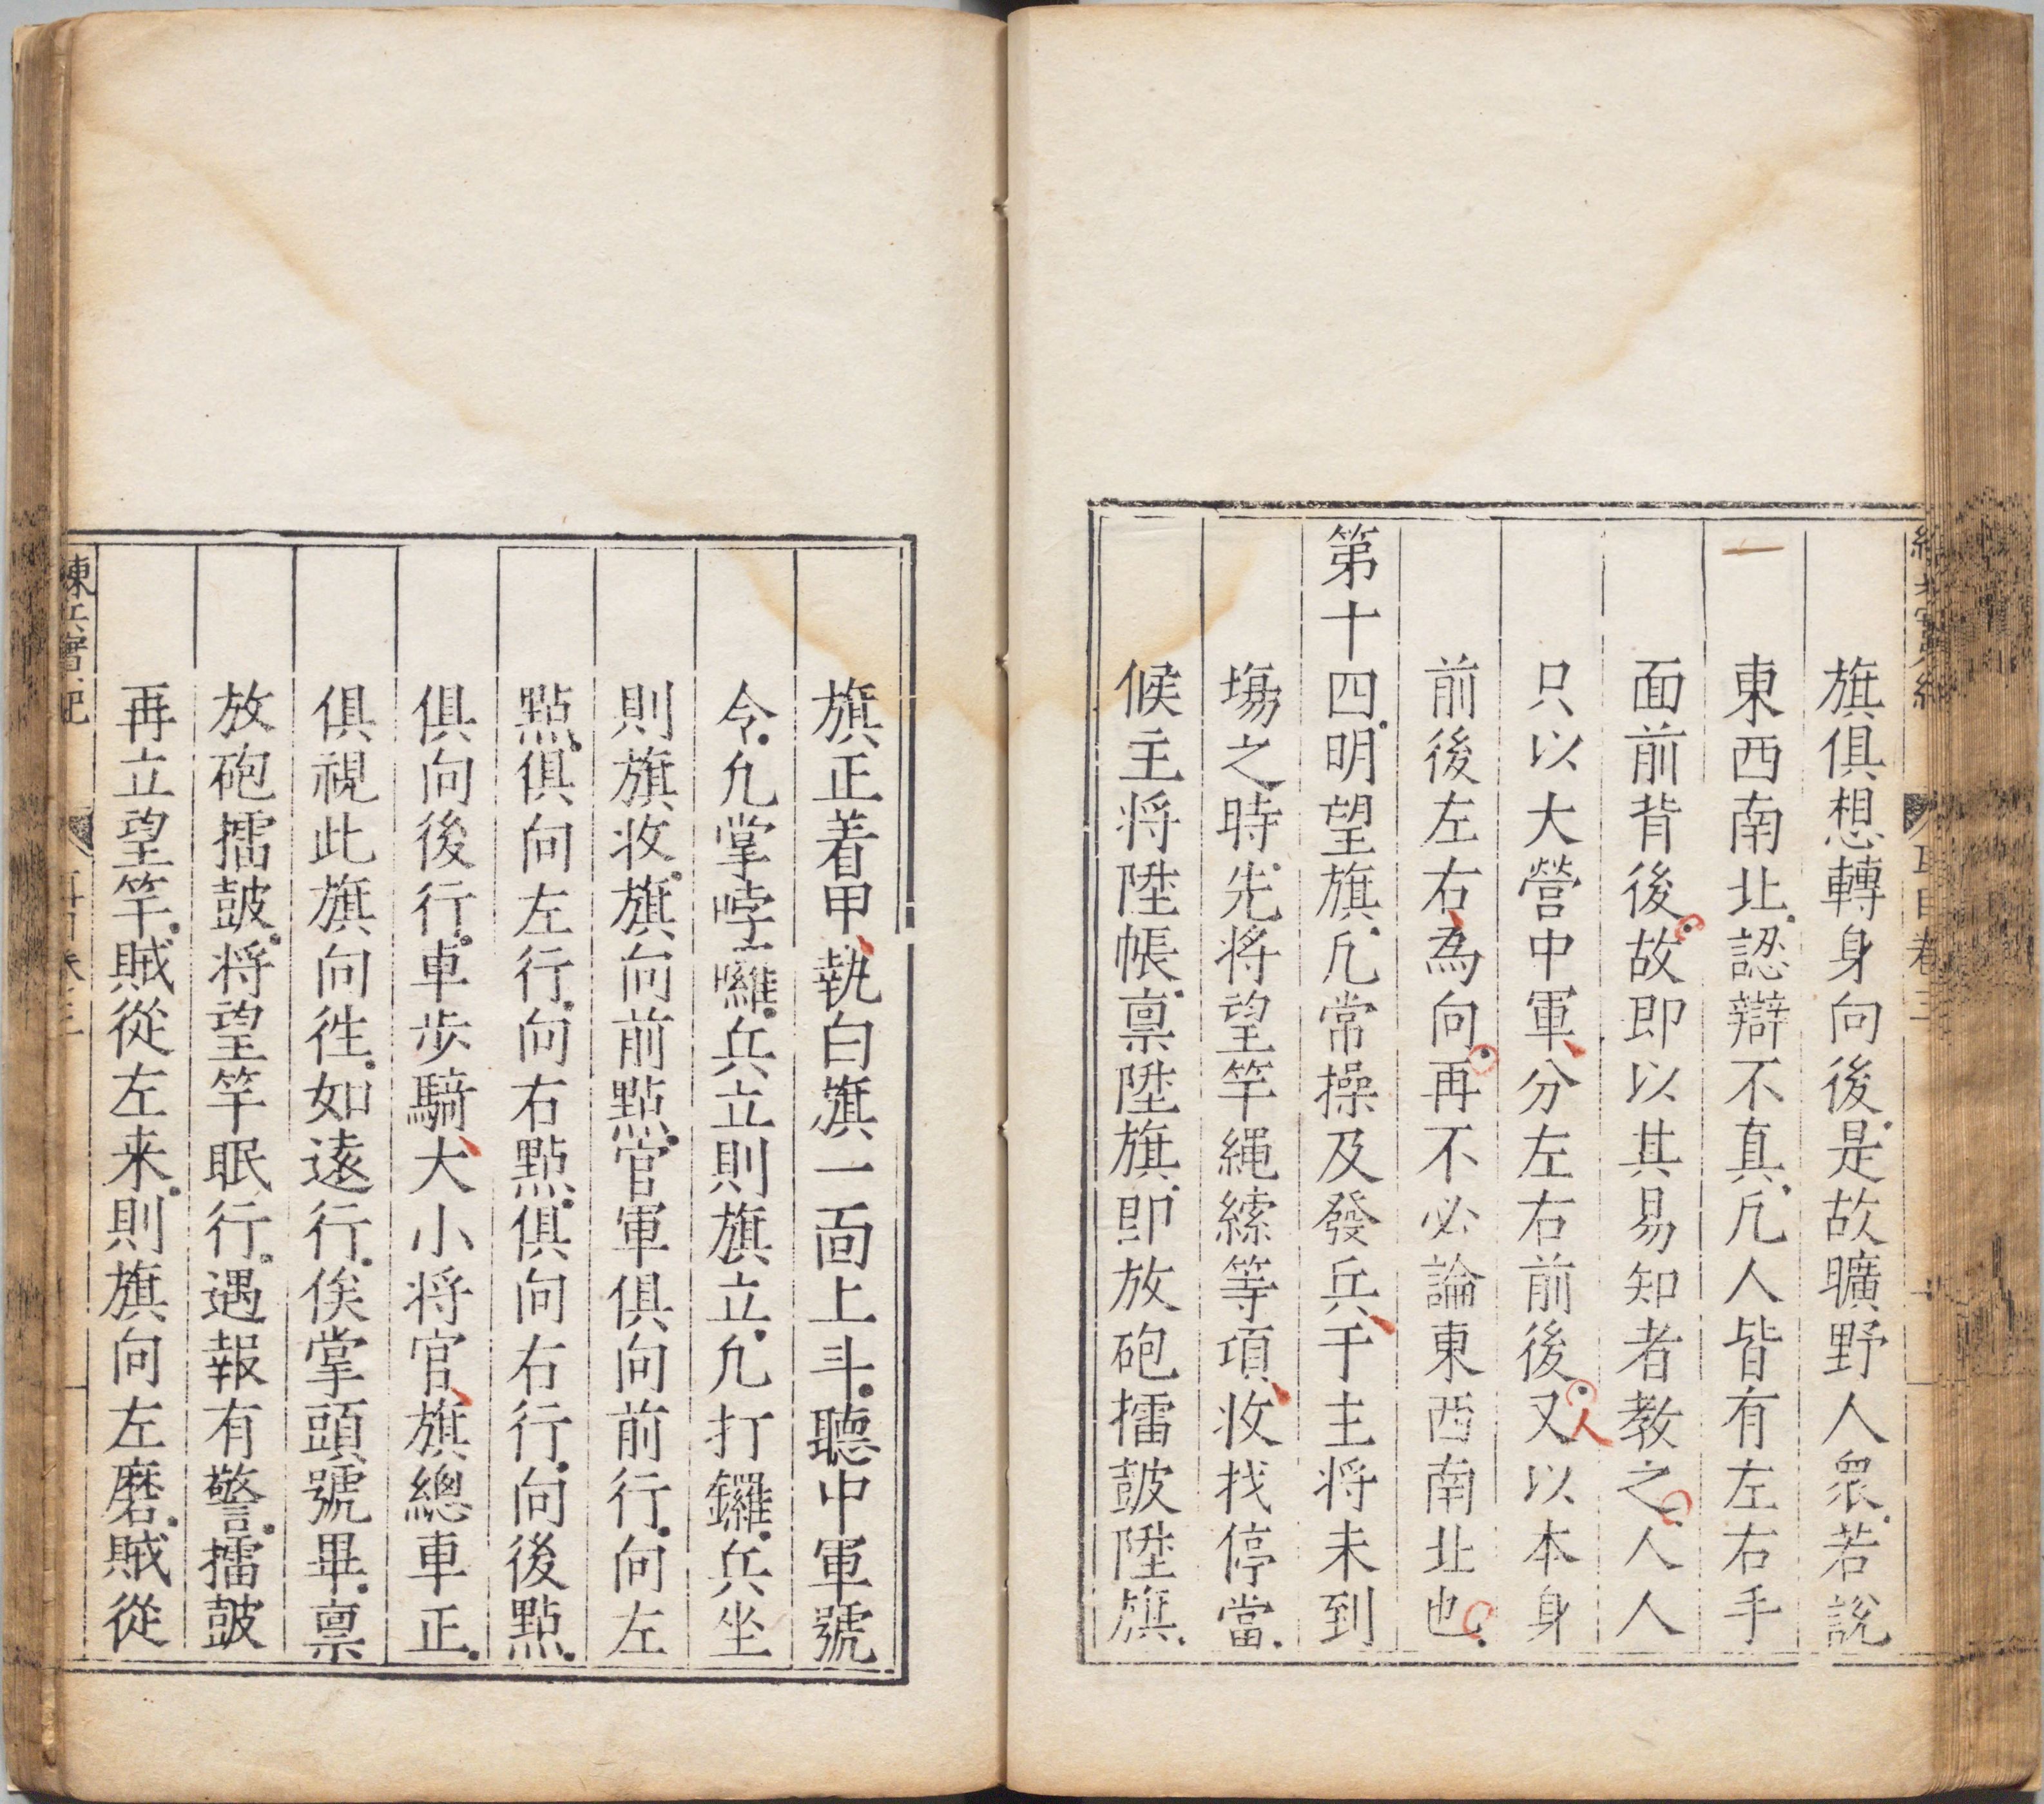 旗俱想轉身向後是故曠野人眾若說
東西南北認辯不真凢人皆有左右手
面前背後故即以其易知者教之人人
只以大營中軍分左右前後又以本身
人
前後左右為向再不必論東西南北也
第十四明望旗凢常操及發兵于主将未到
塲之時先将望竿繩纅等項收找停當
候主将陞帳禀陞旗即放砲擂鼓陞旗
旗正着甲執白旗一面上斗聽中軍號
令凢掌哱囉兵立則旗立凢打鑼兵坐
則旗收旗向前㸃官軍俱向前行向左
㸃俱向左行向右㸃俱向右行向後㸃
俱向後行車步騎大小将官旗總車正
俱視此旗向徃如遠行俟掌頭號畢禀
放砲擂鼓将望竿眠行遇報有警擂鼓
再立望竿賊從左来則旗向左磨賊從
練兵實紀